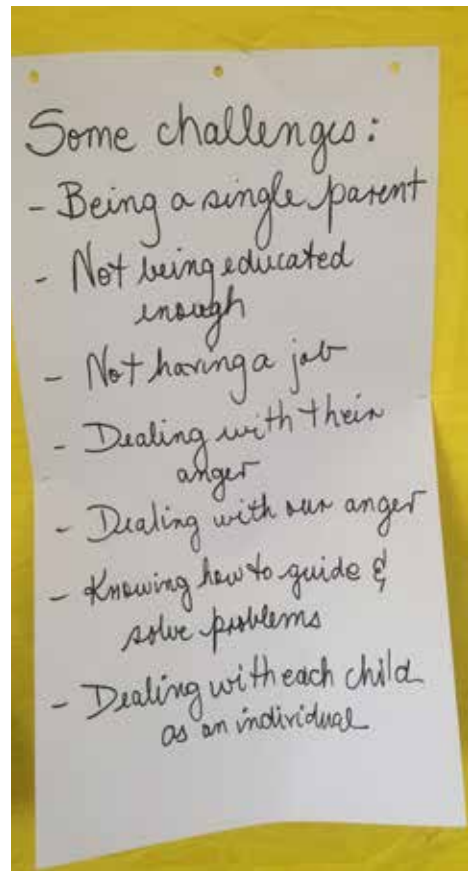 Some challenges:
- Being a single parent
- Not being educated
enough
- Not having a job
- Dealing with their
anger
- Dealing with our anger
- Knowing how to guide &
solve problems
- Dealing with each child
as an individual